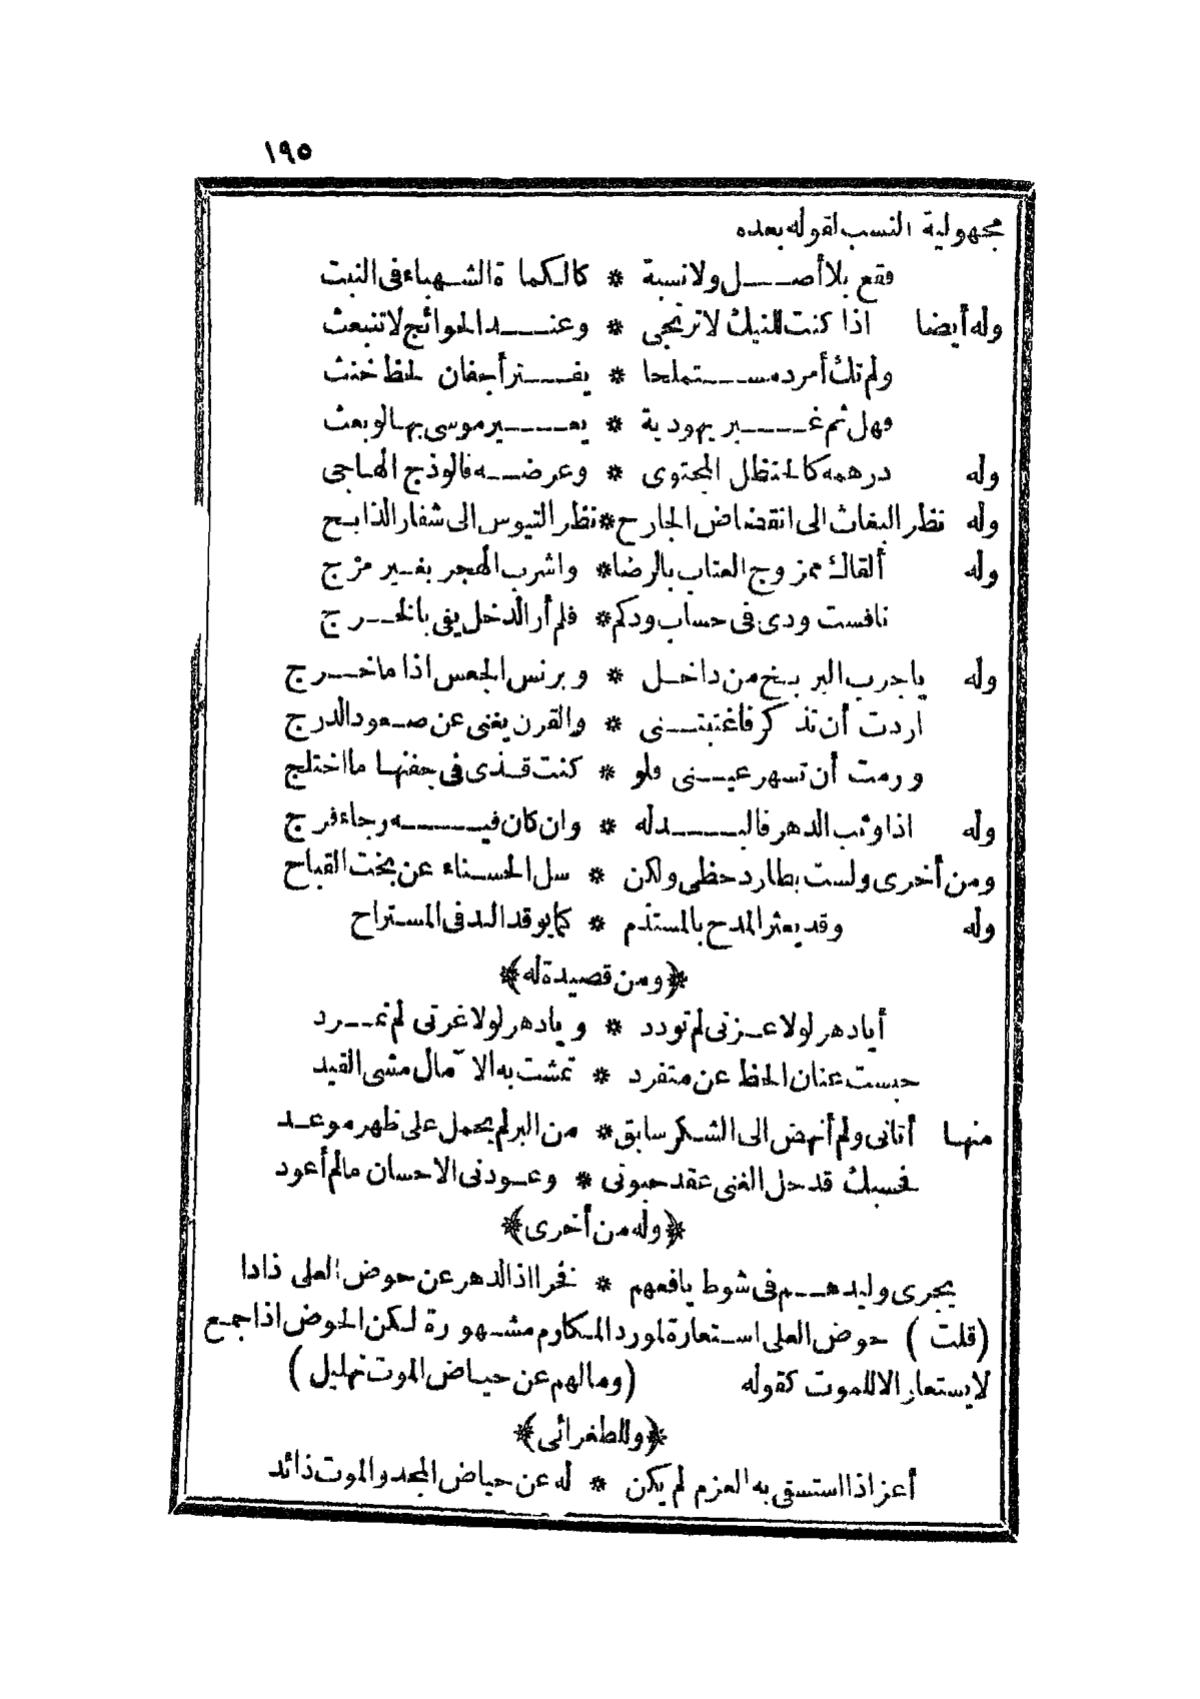 ١٩٥
مجهولية النسب لقوله بعده
فقع بلا أصل ولا نسبة * كالكماة الشهباء فى النبت
وله أيضا اذا كنت للنيك لا ترتجى * وعند الحوائج لا تنبعث
ولم تك أمرد مستملحا * يفتر أجفان لحظ خنث
فهل ثم غير يهودية * يعير موسى بها لو بعث
وله درهمه كالحنظل المجتوى * وعرضه فالوذج الهاجى
وله نظر البغاث الى انقضاض الجارح * نظر التيوس الى شفار الذابح
وله ألقاك ممزوج العتاب بالرضا * واشرب الهجر بغير مزج
نافست ودى فى حساب ودكم * فلم أر الدخل يفى بالخرج
وله ياجرب البربخ من داخل * وبرنس الجعس اذا ما خرج
اردت أن تذكر فاغتبتنى * والقرن يغنى عن صعود الدرج
ورمت أن تسهر عينى فلو * كنت قذى فى جفنها ما اختلج
وله اذا وثب الدهر فالبد له * وان كان فيه رجاء فرج
ومن أخرى ولست بطارد حظى ولكن * سل الحسناء عن بخت القباح
وله وقد يعثر المدح بالمستذم * كما يوقد الند فى المستراح
﴿ومن قصيدة له﴾
أيا دهر لولا عزتى لم تودد * ويا دهر لولا غرتى لم تمرد
حبست عنان الحظ عن متفرد * تمشت به الآمال مشى القيد
منها أتانى ولم أنهض الى الشكر سابق * من البر لم يحمل على ظهر موعد
فحسبك قد حل الغنى عقد حبوتى * وعودنى الاحسان مالم أعود
﴿وله من أخرى﴾
يجرى وليدهم فى شوط يافعهم * فخرا اذا الدهر عن حوض العلى ذادا
(قلت) حوض العلى استعارة لمورد المكارم مشهورة لكن الحوض اذا جمع
لا يستعار الا للموت كقوله (وما لهم عن حياض الموت تهليل)
﴿وللطغرائى﴾
أعز اذا استسقى به العزم لم يكن * له عن حياض المجد والموت ذائد